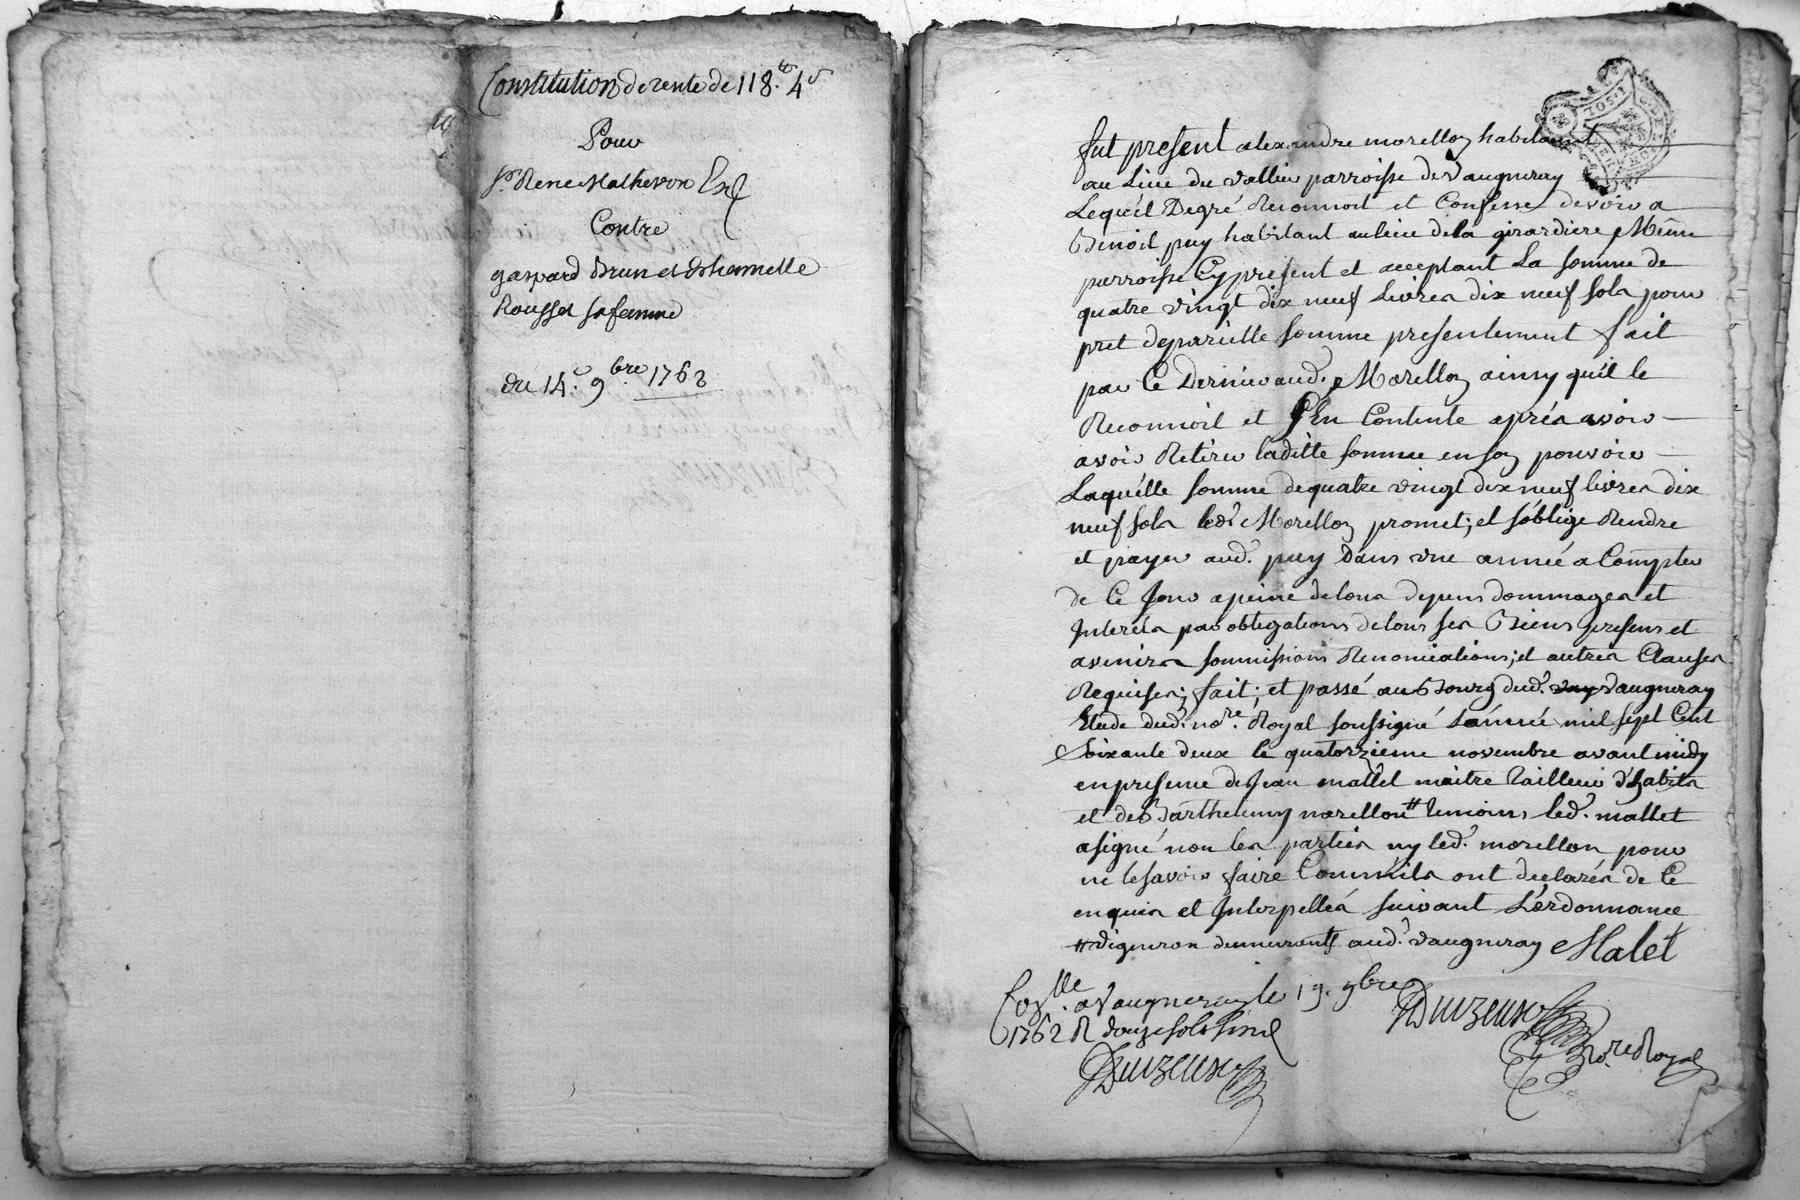 Constitution de rente de 118.tt 4s
Pour
Sr Rene Mathevon
Contre
gaspard Brun et
Rousset sa femme
du 14.e 9bre. 1762
fut present alexandre morellon habitant
au Lieu du vallier parroisse de Vaugneray
Lequél Degré Reconnoit et Confesse devoir a
Benoit puy habitant au lieu de la girardiere Même
parroisse Cy present et acceptant La somme de
quatre vingt dix neuf Livres dix neuf sols pour
pret de pareille somme presentement fait
par Ce Dernier aud. Morellon ainsy qu'il le
Reconnoit et s'En Contente aprés avoir
avoir Retiré laditte somme en son pouvoir
Laquélle somme de quatre vingt dix neuf livres dix
neuf sols led. Morellon promet; et s'oblige Rendre
et payer aud. puy Dans une année a Compter
de Ce Jour a peine de tous depens dommages et
Interéts par obligations de tous ses Biens presens et
avenirs soumissions Renonciations; et autres Clauses
Requises; fait; et passé au Bourg dud. Vaugneray
Etude dud. nore. Royal soussigné L'année mil sept Cent
Soixante deux le quatorzieme novembre avant midy
en presence de Jean mallet maitre Tailleur d'habits
et de Barthelemy morellon # temoins led. mallet
a signé non les parties ny led. morellon pour
ne le savoir faire Comme ils ont declarés de Ce
enquis et Interpellés suivant L'ordonnance
# vigneron demeurants aud. vaugneray Malet
Coñlle. a Vaugneray le 19. 9bre
1762 R douze sols Signé
nore Royal